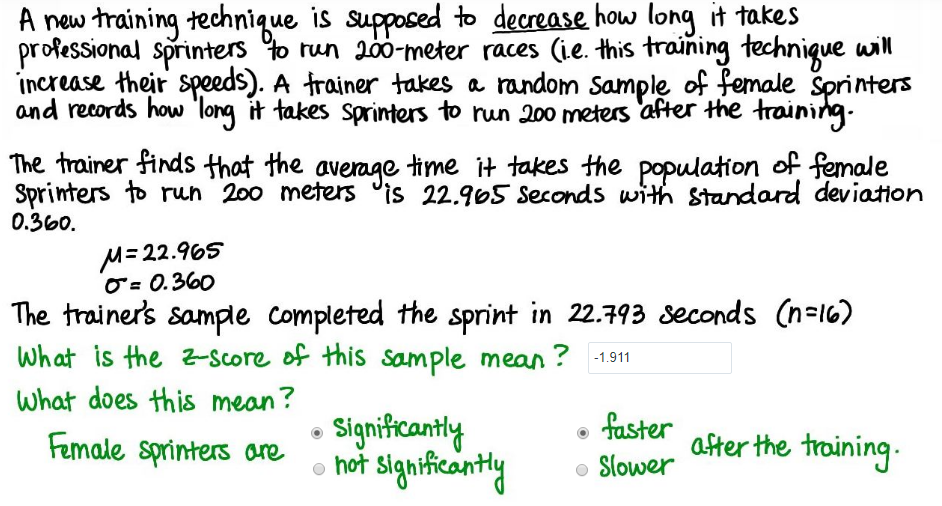 A new training technique is supposed to decrease how long it takes
professional sprinters to run 200-meter races (i.e. this training technique will
increase their speeds). A trainer takes a random sample of female sprinters
and records how long it takes sprinters to run 200 meters after the training.
The trainer finds that the average time it takes the population of female
sprinters to run 200 meters is 22.965 seconds with standard deviation
0.360.
μ=22.965
σ= 0.360
The trainer's sample completed the sprint in 22.793 seconds (n=16)
What is the z-score of this sample mean? -1.911
What does this mean?
Female sprinters are significantly faster after the training.
not significantly slower